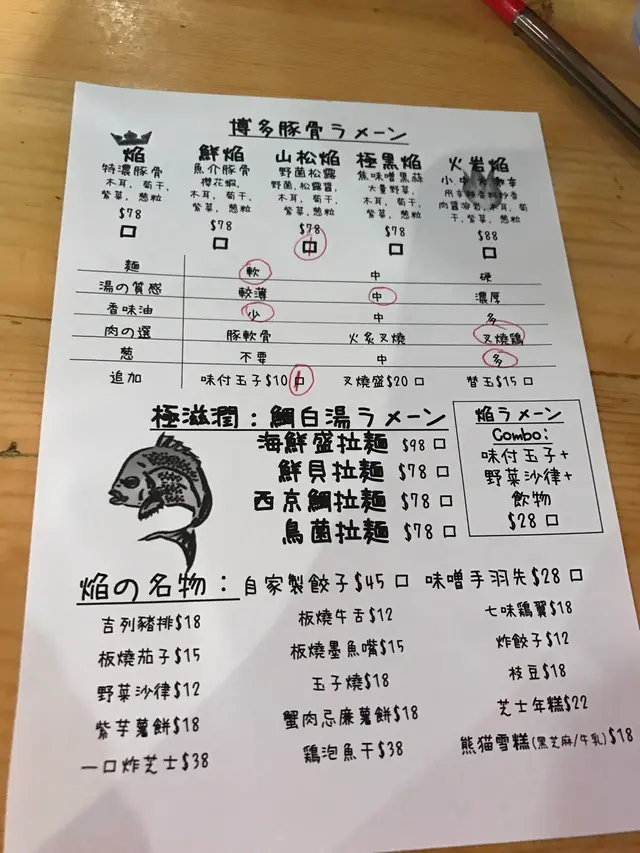 博多豚骨ラーメン
焔 鮮焔 山松焔 極黒焔 火岩焔
特濃豚骨 魚介豚骨 野菌松露 焦味噌黒蒜
木耳, 荀干, 櫻花蝦, 野菌, 松露醬, 大量野菜,
紫菜, 葱粒 木耳, 荀干, 木耳, 荀干, 木耳, 荀干, 肉醤油岩, 木耳, 荀
紫菜, 葱粒 紫菜, 葱粒 紫菜, 葱粒 干, 紫菜, 葱粒
$78 $78 $78 $78 $88
麺 軟 中 硬
湯の質感 較薄 中 濃厚
香味油 少 中 多
肉の選 豚軟骨 火炙叉燒 叉燒鶏
葱 不要 中 多
追加 味付玉子$10 叉燒盛$20 替玉$15
極滋潤：鯛白湯ラーメン
海鮮盛拉麺 $98
鮮貝拉麺 $78
西京鯛拉麺 $78
鳥菌拉麺 $78
焔ラーメン
Combo:
味付玉子+
野菜沙律+
飲物
$28
焔の名物：自家製餃子$45 味噌手羽先$28
吉列豬排$18 板燒牛舌$12 七味鶏翼$18
板燒茄子$15 板燒墨魚嘴$15 炸餃子$12
野菜沙律$12 玉子燒$18 枝豆$18
紫芋薯餅$18 蟹肉忌廉薯餅$18 芝士年糕$22
一口炸芝士$38 鶏泡魚干$38 熊猫雪糕(黒芝麻/牛乳)$18